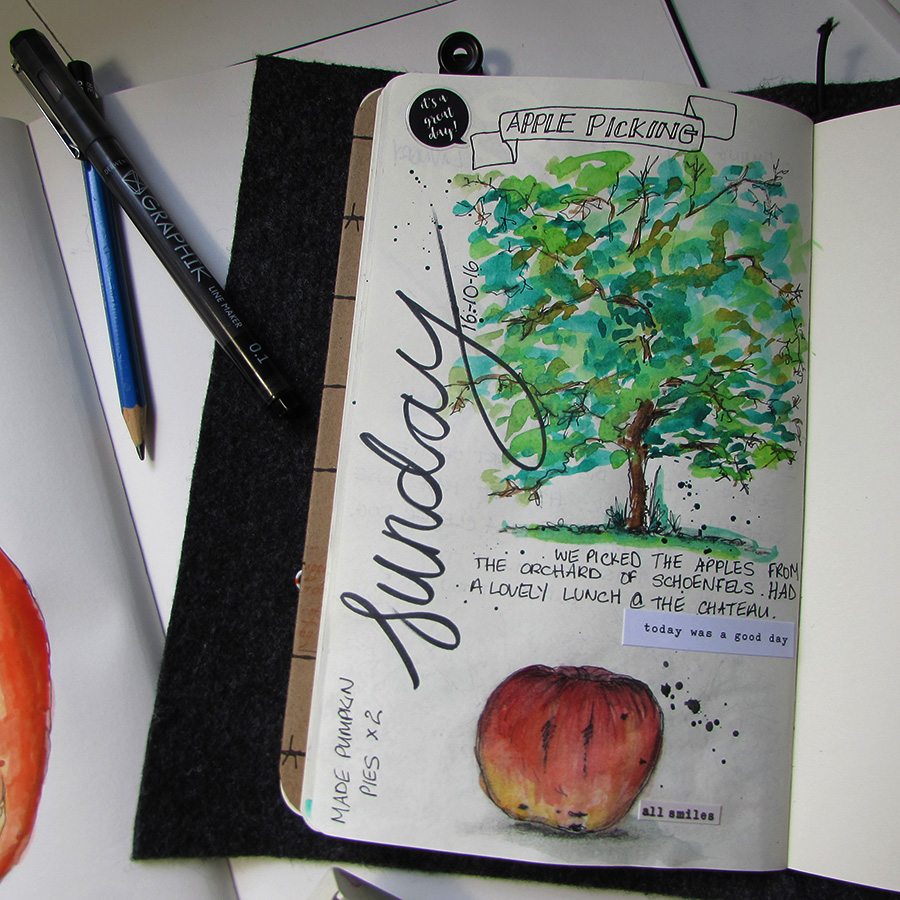 it's a
great
day!
APPLE PICKING
16-10-16
Sunday
WE PICKED THE APPLES FROM
THE ORCHARD OF SCHOENFELS. HAD
A LOVELY LUNCH @ THE CHATEAU.
today was a good day
MADE PUMPKIN
PIES x 2
all smiles
GRAPHIK
LINE MAKER
0.1